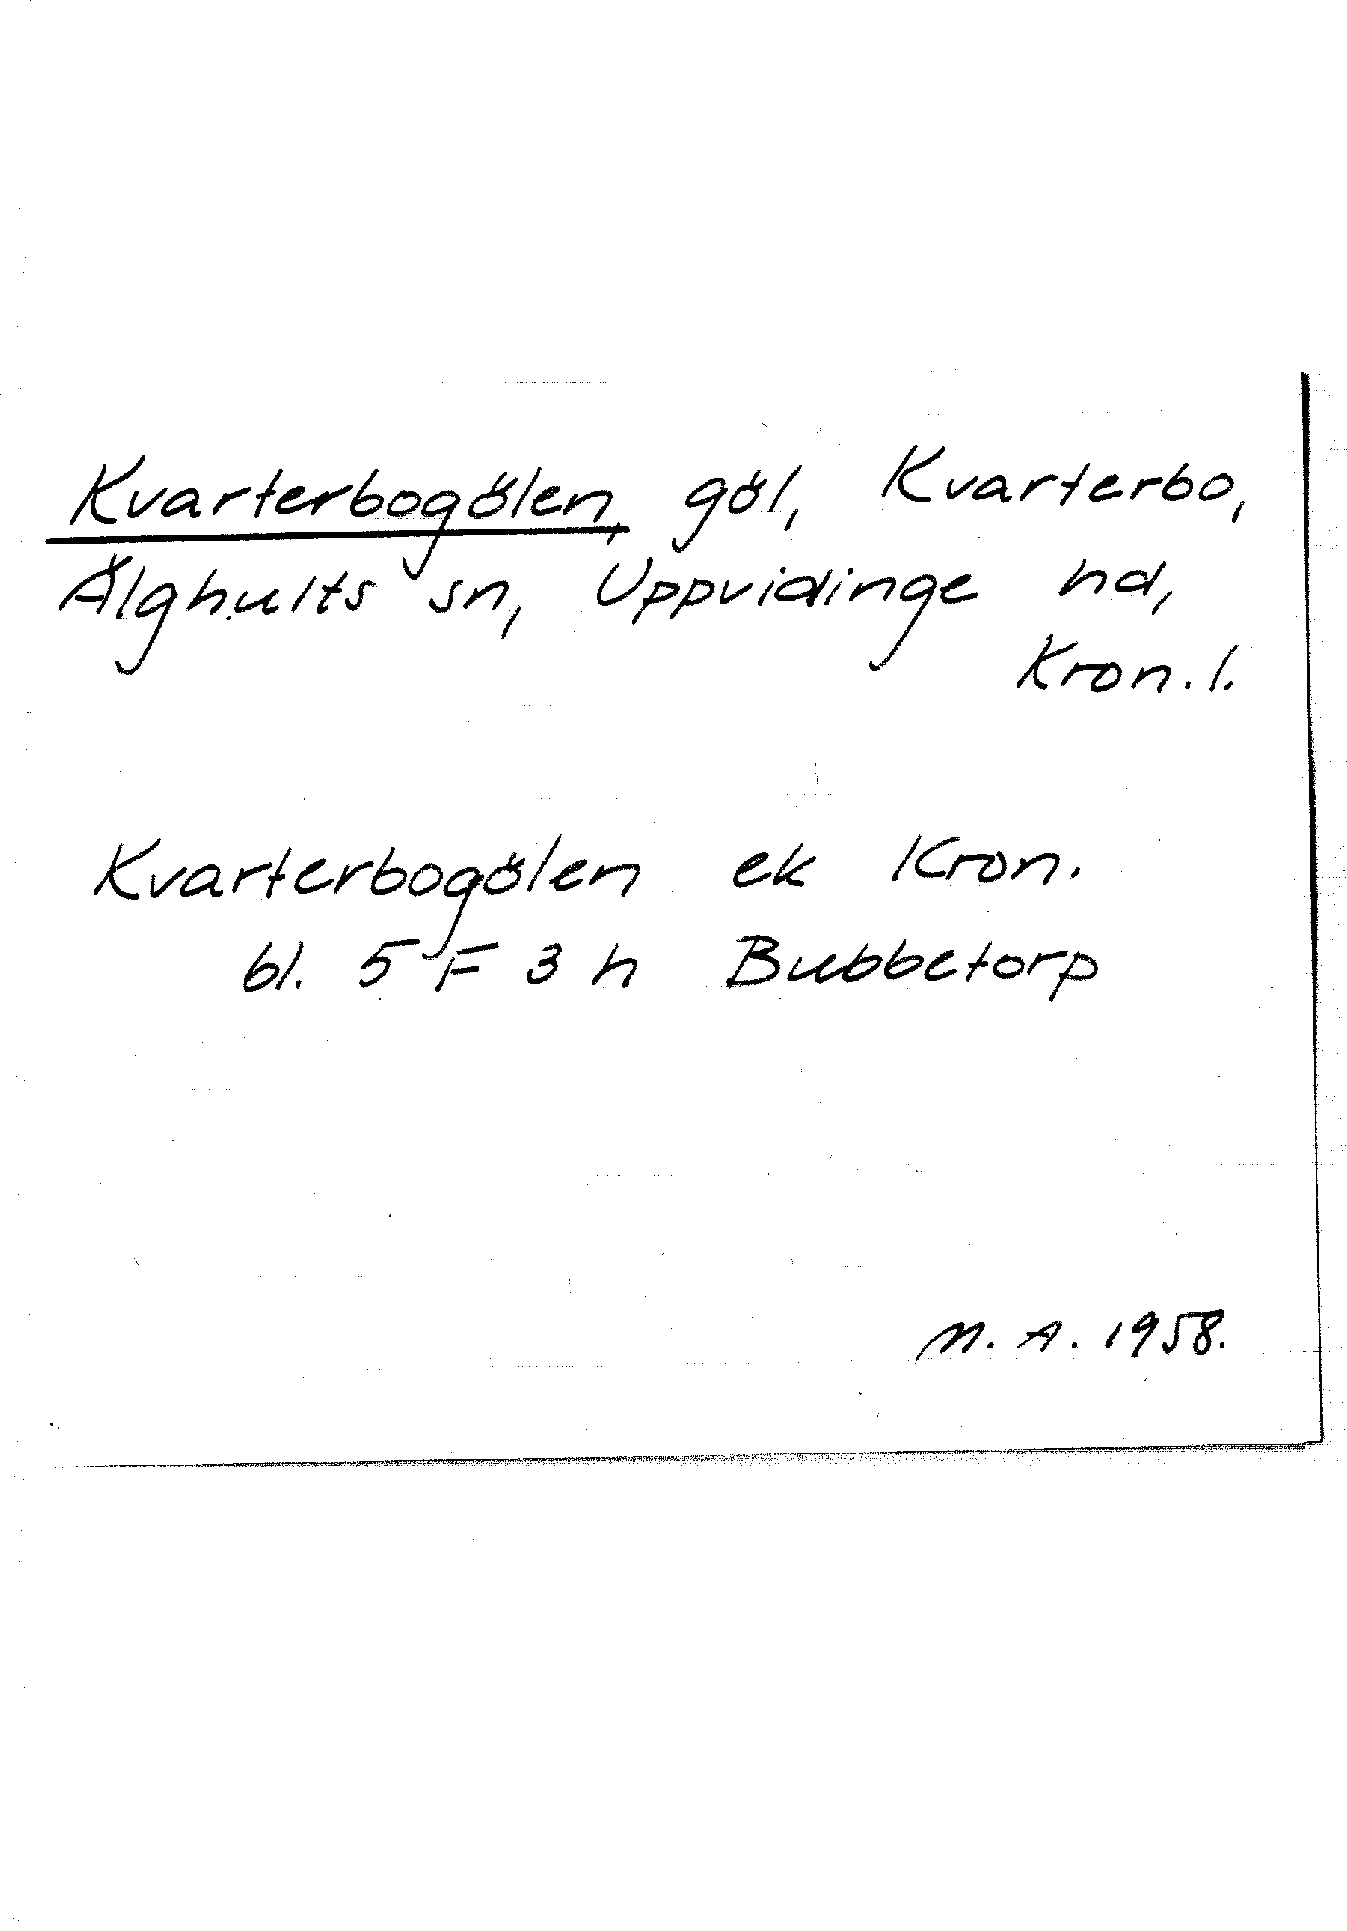 Kvarterbogölen, göl, Kvarterbo,
Älghults sn, Uppvidinge hd,
Kron. l.
Kvarterbogölen ek Kron.
bl. 5 F 3 h Bubbetorp
M. A. 1958.